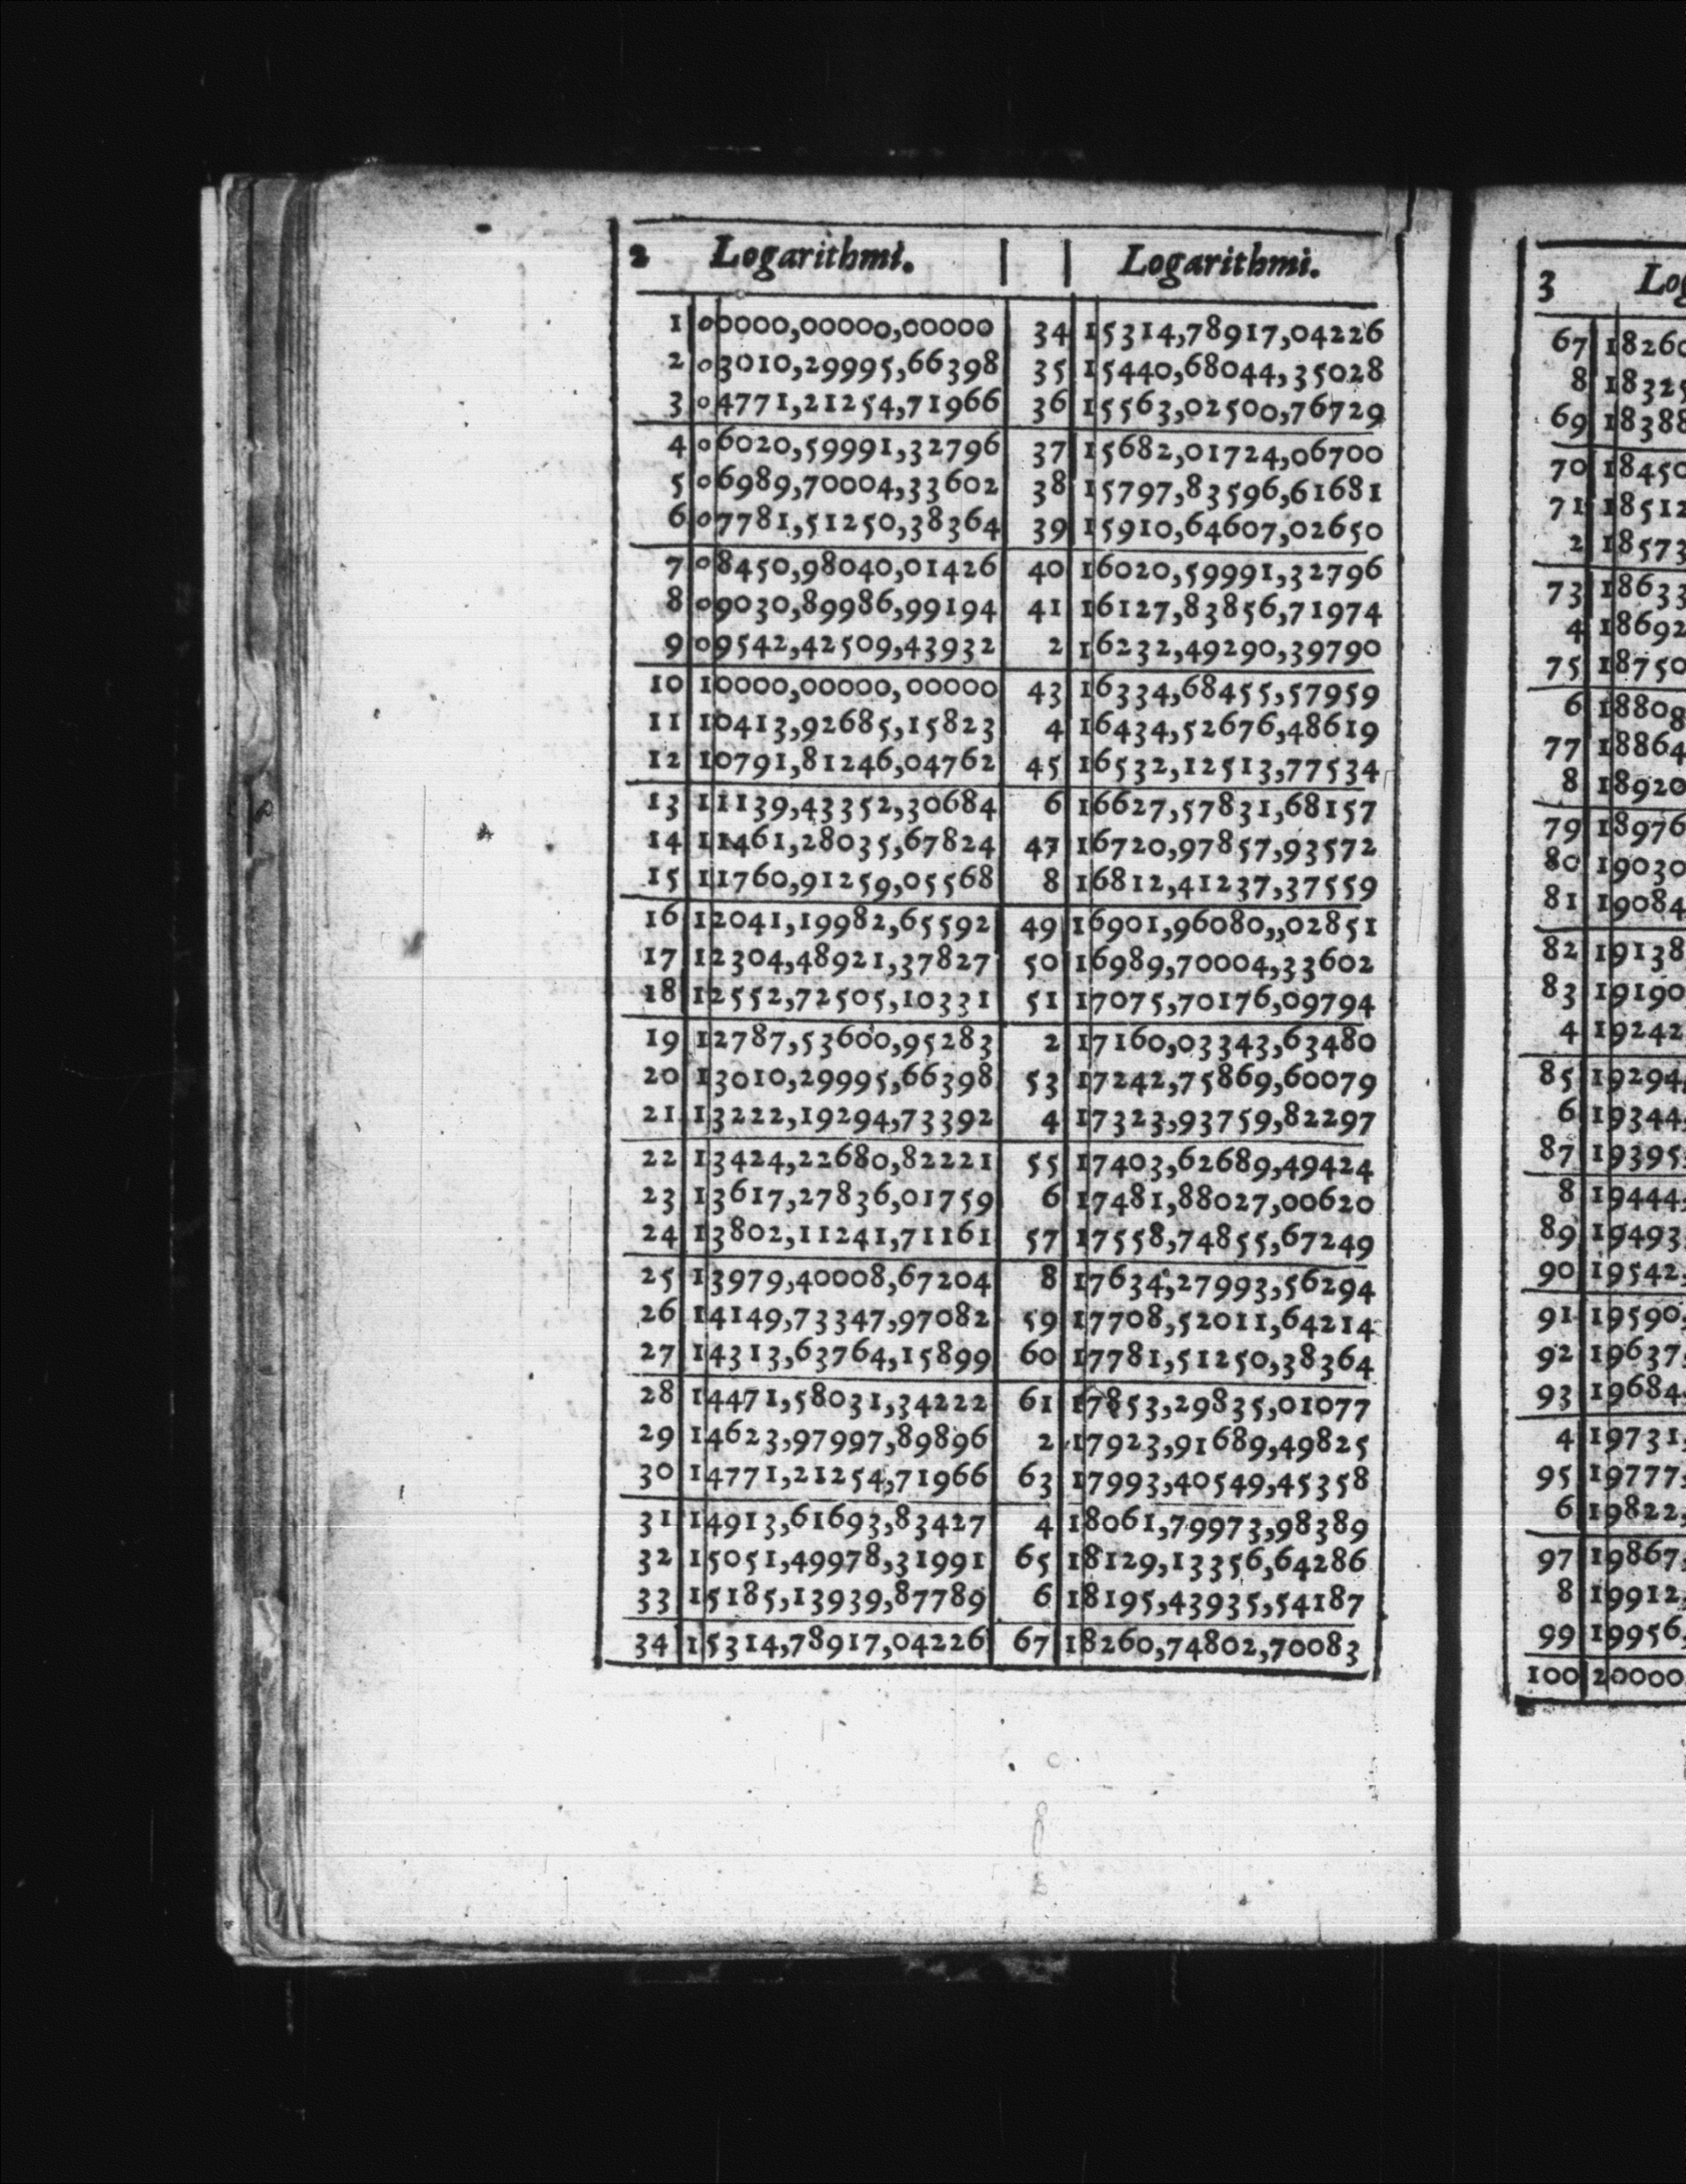 2 Logarithmi. Logarithmi.
1 00000,00000,00000 34 15314,78917,04226
2 03010,29995,66398 35 15440,68044,35028
3 04771,21254,71966 36 15563,02500,76729
4 06020,59991,32796 37 15682,01724,06700
5 06989,70004,33602 38 15797,83596,61681
6 07781,51250,38364 39 15910,64607,02650
7 08450,98040,01426 40 16020,59991,32796
8 09030,89986,99194 41 16127,83856,71974
9 09542,42509,43932 2 16232,49290,39790
10 10000,00000,00000 43 16334,68455,57959
11 10413,92685,15823 4 16434,52676,48619
12 10791,81246,04762 45 16532,12513,77534
13 11139,43352,30684 6 16627,57831,68157
14 11461,28035,67824 47 16720,97857,93572
15 11760,91259,05568 8 16812,41237,37559
16 12041,19982,65592 49 16901,96080,,02851
17 12304,48921,37827 50 16989,70004,33602
18 12552,72505,10331 51 17075,70176,09794
19 12787,53600,95283 2 17160,03343,63480
20 13010,29995,66398 53 17242,75869,60079
21 13222,19294,73392 4 17323,93759,82297
22 13424,22680,82221 55 17403,62689,49424
23 13617,27836,01759 6 17481,88027,00620
24 13802,11241,71161 57 17558,74855,67249
25 13979,40008,67204 8 17634,27993,56294
26 14149,73347,97082 59 17708,52011,64214
27 14313,63764,15899 60 17781,51250,38364
28 14471,58031,34222 61 17853,29835,01077
29 14623,97997,89896 2 17923,91689,49825
30 14771,21254,71966 63 17993,40549,45358
31 14913,61693,83427 4 18061,79973,98389
32 15051,49978,31991 65 18129,13356,64286
33 15185,13939,87789 6 18195,43935,54187
34 15314,78917,04226 67 18260,74802,70083
3
67 18260
8 18325
69 18388
70 18450
71 18512
2 18573
73 18633
4 18692
75 18750
6 18808
77 18864
8 18920
79 18976
80 19030
81 19084
82 19138
83 19190
4 19242
85 19294,
6 19344,
87 19395,
8 19444,
89 19493,
90 19542,
91 19590,
92 19637,
93 19684,
4 19731,
95 19777,
6 19822,
97 19867,
8 19912,
99 19956,
100 20000,